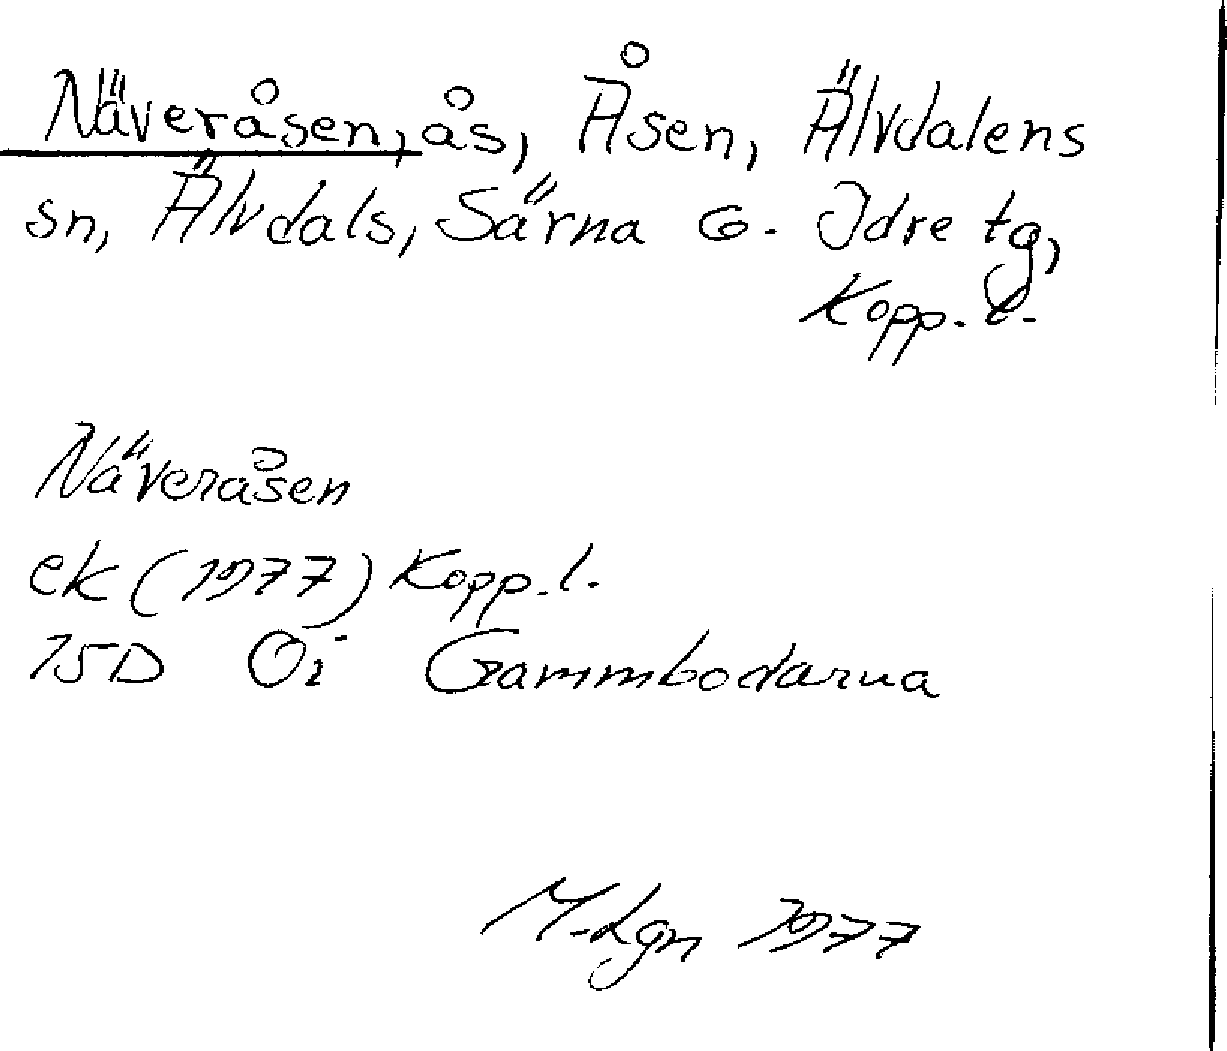 Näveråsen, ås, Åsen, Älvdalens
sn, Älvdals, Särna o. Idre tg,
Kopp. l.
Näveråsen
ek (1977) Kopp. l.
15D Oi Gammbodarna
M-Lgn 1977